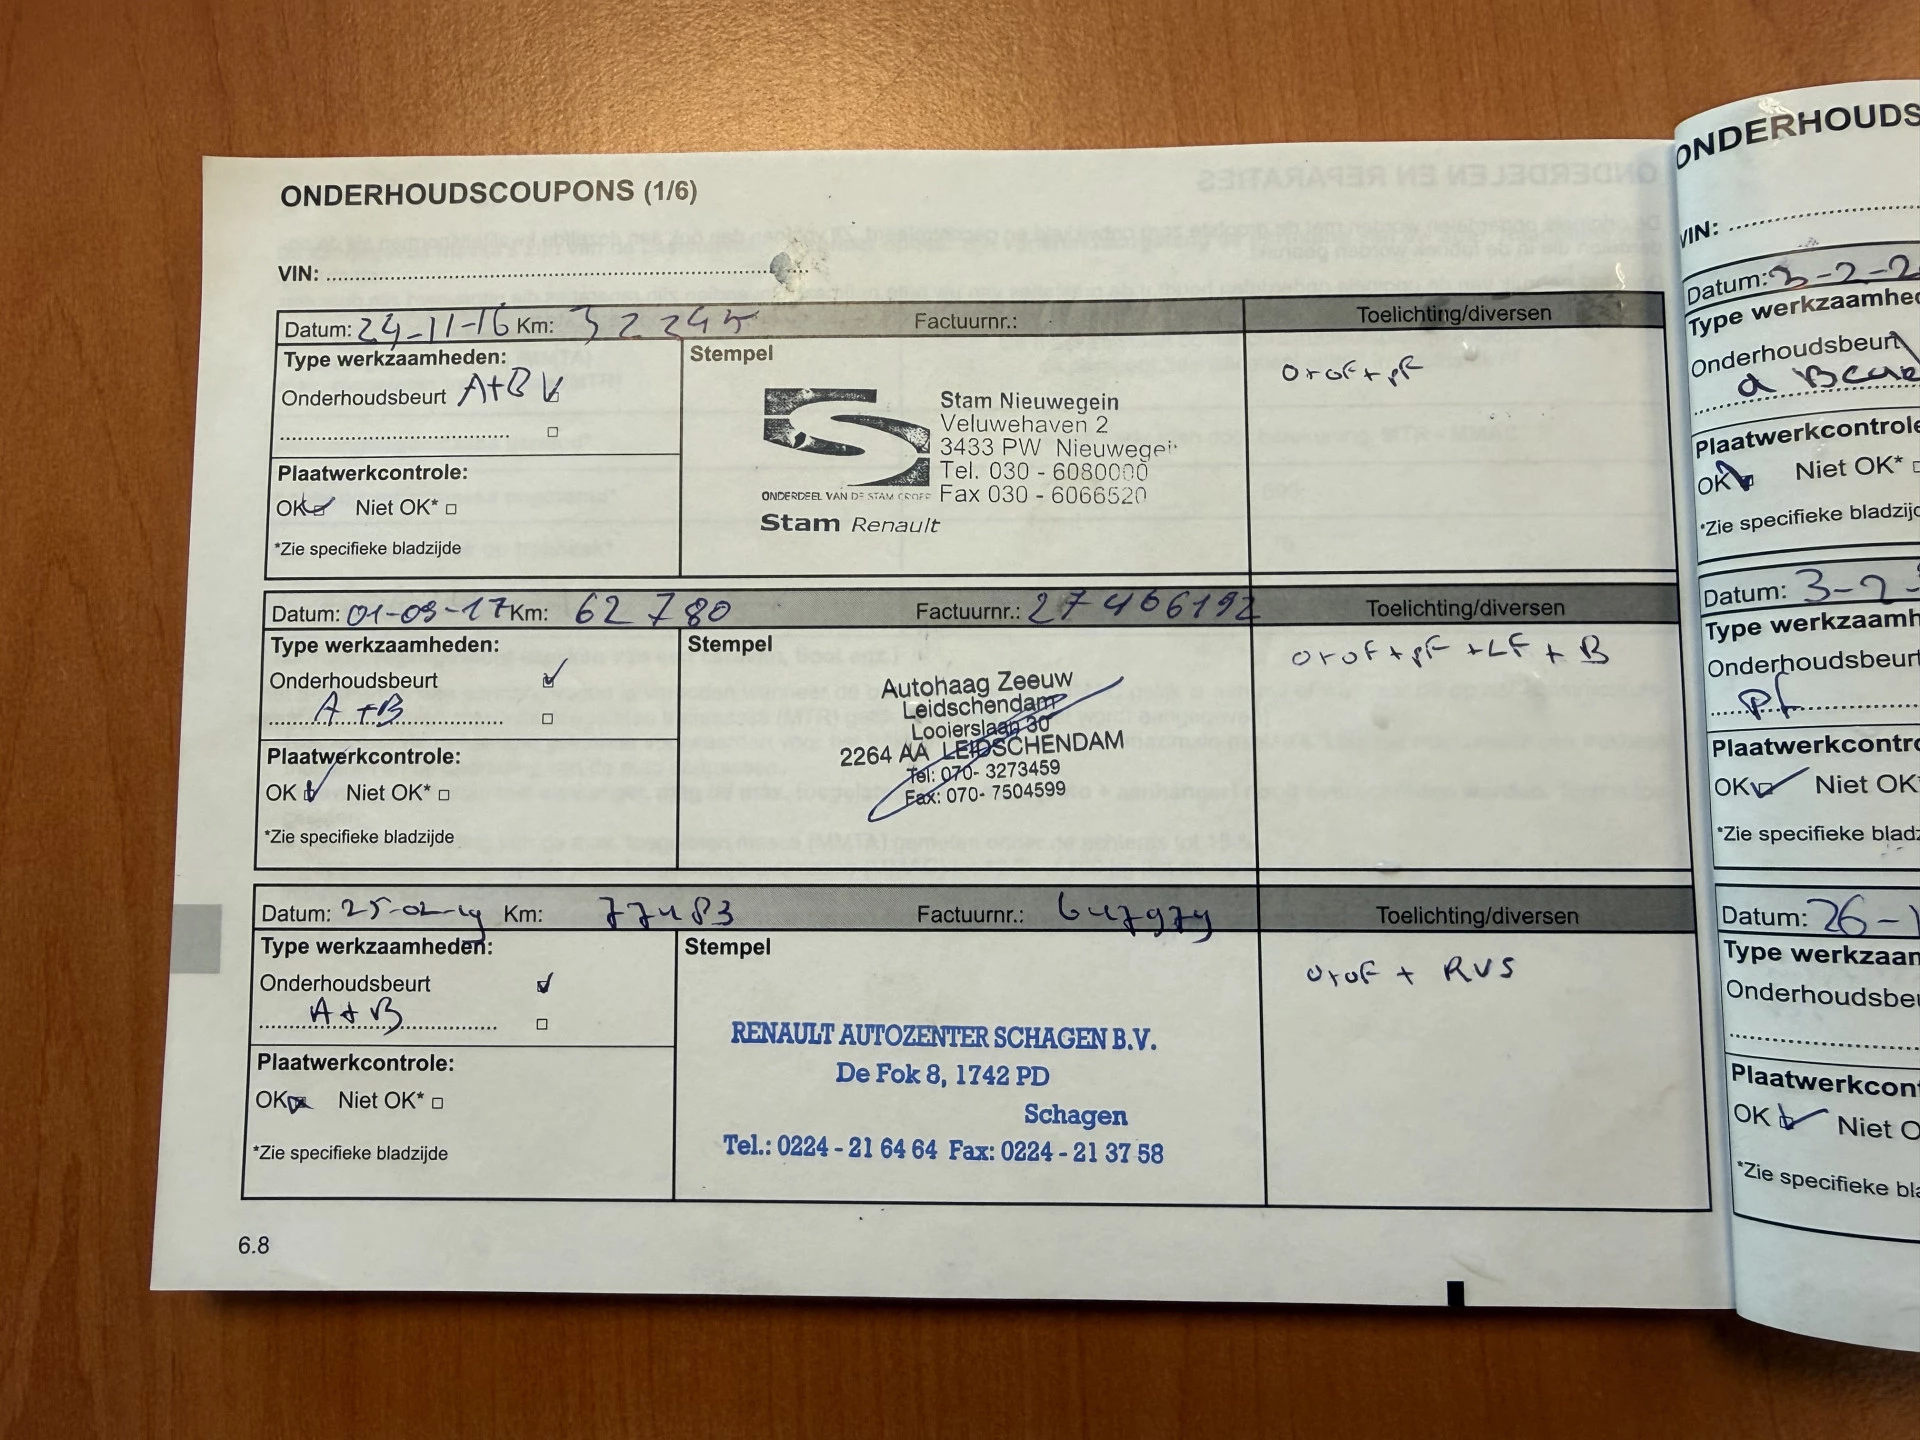 ONDERHOUDSCOUPONS (1/6)
VIN:
Datum: 24-11-16 Km: 32245 Factuurnr.: Toelichting/diversen
Type werkzaamheden:
Onderhoudsbeurt A+B
Plaatwerkcontrole:
OK Niet OK*
*Zie specifieke bladzijde
Stempel
Stam Nieuwegein
Veluwehaven 2
3433 PW Nieuwegei
Tel. 030 - 6080000
Fax 030 - 6066520
ONDERDEEL VAN DE STAM GROEP
Stam Renault
O+OF+PF
Datum: 01-09-17 Km: 62780 Factuurnr.: 27466192 Toelichting/diversen
Type werkzaamheden:
Onderhoudsbeurt
A+B
Plaatwerkcontrole:
OK Niet OK*
*Zie specifieke bladzijde
Stempel
Autohaag Zeeuw
Leidschendam
Looierslaan 30
2264 AA LEIDSCHENDAM
Tel: 070- 3273459
Fax: 070- 7504599
O+OF+PF+LF+B
Datum: 25-02-19 Km: 77483 Factuurnr.: 647979 Toelichting/diversen
Type werkzaamheden:
Onderhoudsbeurt
A+B
Plaatwerkcontrole:
OK Niet OK*
*Zie specifieke bladzijde
Stempel
RENAULT AUTOZENTER SCHAGEN B.V.
De Fok 8, 1742 PD
Schagen
Tel.: 0224 - 21 64 64 Fax: 0224 - 21 37 58
O+OF + RVS
6.8
ONDERHOUDS
VIN:
Datum: 3-2-2
Type werkzaamhe
Onderhoudsbeurt
a Beur
Plaatwerkcontrole
OK Niet OK*
*Zie specifieke bladzijd
Datum: 3-2
Type werkzaamh
Onderhoudsbeurt
PF
Plaatwerkcontro
OK Niet OK*
*Zie specifieke bladz
Datum: 26-1
Type werkzaam
Onderhoudsbeu
Plaatwerkcon
OK Niet O
*Zie specifieke bla